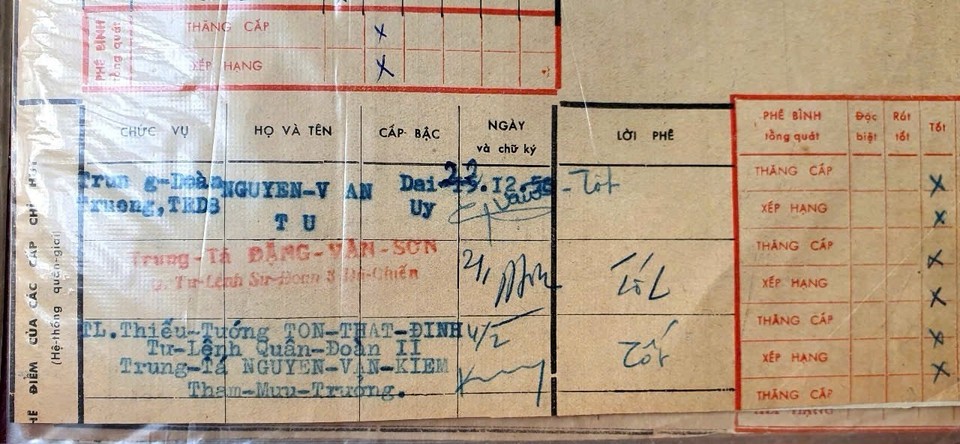 THĂNG CẤP
PHÊ BÌNH
tổng quát
XẾP HẠNG
CHỨC VỤ
HỌ VÀ TÊN
CẤP BẬC
NGÀY
và chữ ký
LỜI PHÊ
PHÊ BÌNH
tổng quát
Đặc
biệt
Rất
tốt
Tốt
Trung-Đoàn
Truong, TRD8
NGUYEN-VAN
TU
Dai-
Uy
22.12.56
Tốt
THĂNG CẤP
XẾP HẠNG
Trung-Tá ĐẶNG-VĂN-SƠN
Tư-Lệnh Sư-Đoàn 3 Dã-Chiến
21
Tốt
THĂNG CẤP
XẾP HẠNG
TL.Thiếu-Tướng TON-THAT-ĐINH
Tư-Lệnh Quân-Đoàn II
Trung-Tá NGUYEN-VAN-KIEM
Tham-Mưu-Trưởng.
4/2
Tốt
THĂNG CẤP
XẾP HẠNG
THĂNG CẤP
ĐIỂM CỦA CÁC CẤP CHỈ
(Hệ-thống quân-giai)